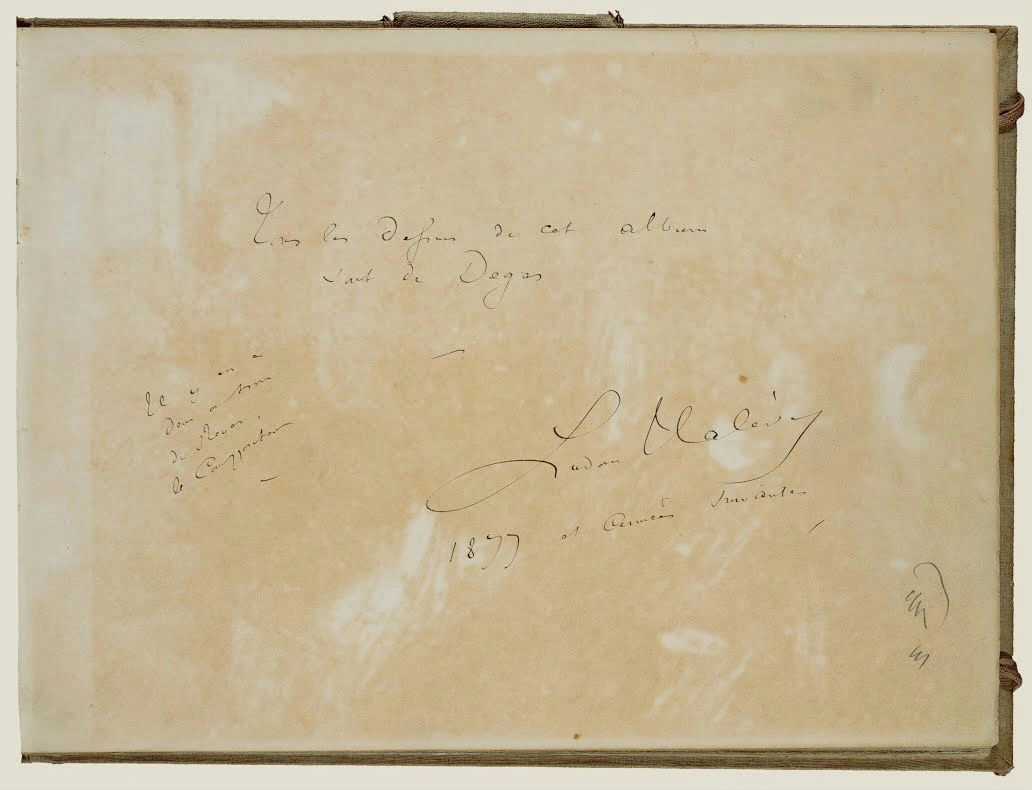 Tous les Dessins de cet album
sont de Degas
Il y en a
deux ou trois
de Reyer,
le Compositeur
Ludovic Halévy
1877 et années suivantes